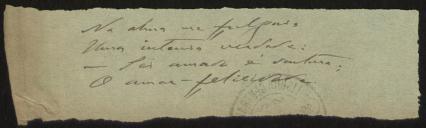 Na alma me fulgura
Uma intensa verdade:
— Ser amada é ventura;
O amar — felicidade